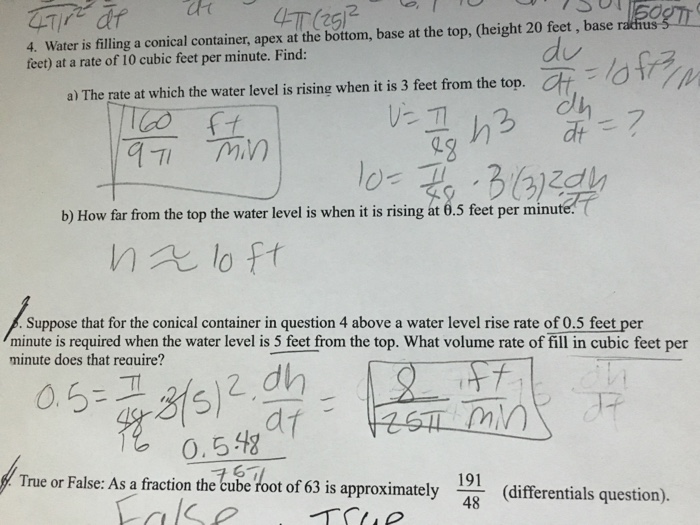 4πr² dr/dt dt 4π(25)² 500π
4. Water is filling a conical container, apex at the bottom, base at the top, (height 20 feet , base radius 5
feet) at a rate of 10 cubic feet per minute. Find:
dv/dt = 10 ft³/m
a) The rate at which the water level is rising when it is 3 feet from the top.
160/9π ft/min
V = π/48 h³ dh/dt = ?
10 = π/48 · 3(3)² · dh/dt
b) How far from the top the water level is when it is rising at 0.5 feet per minute.
h ≈ 10 ft
5. Suppose that for the conical container in question 4 above a water level rise rate of 0.5 feet per
minute is required when the water level is 5 feet from the top. What volume rate of fill in cubic feet per
minute does that require?
0.5 = π/48 3(5)² · dh/dt = 8/25π ft/min dh/dt
16 0.5·48/75π
6. True or False: As a fraction the cube root of 63 is approximately 191/48 (differentials question).
False True